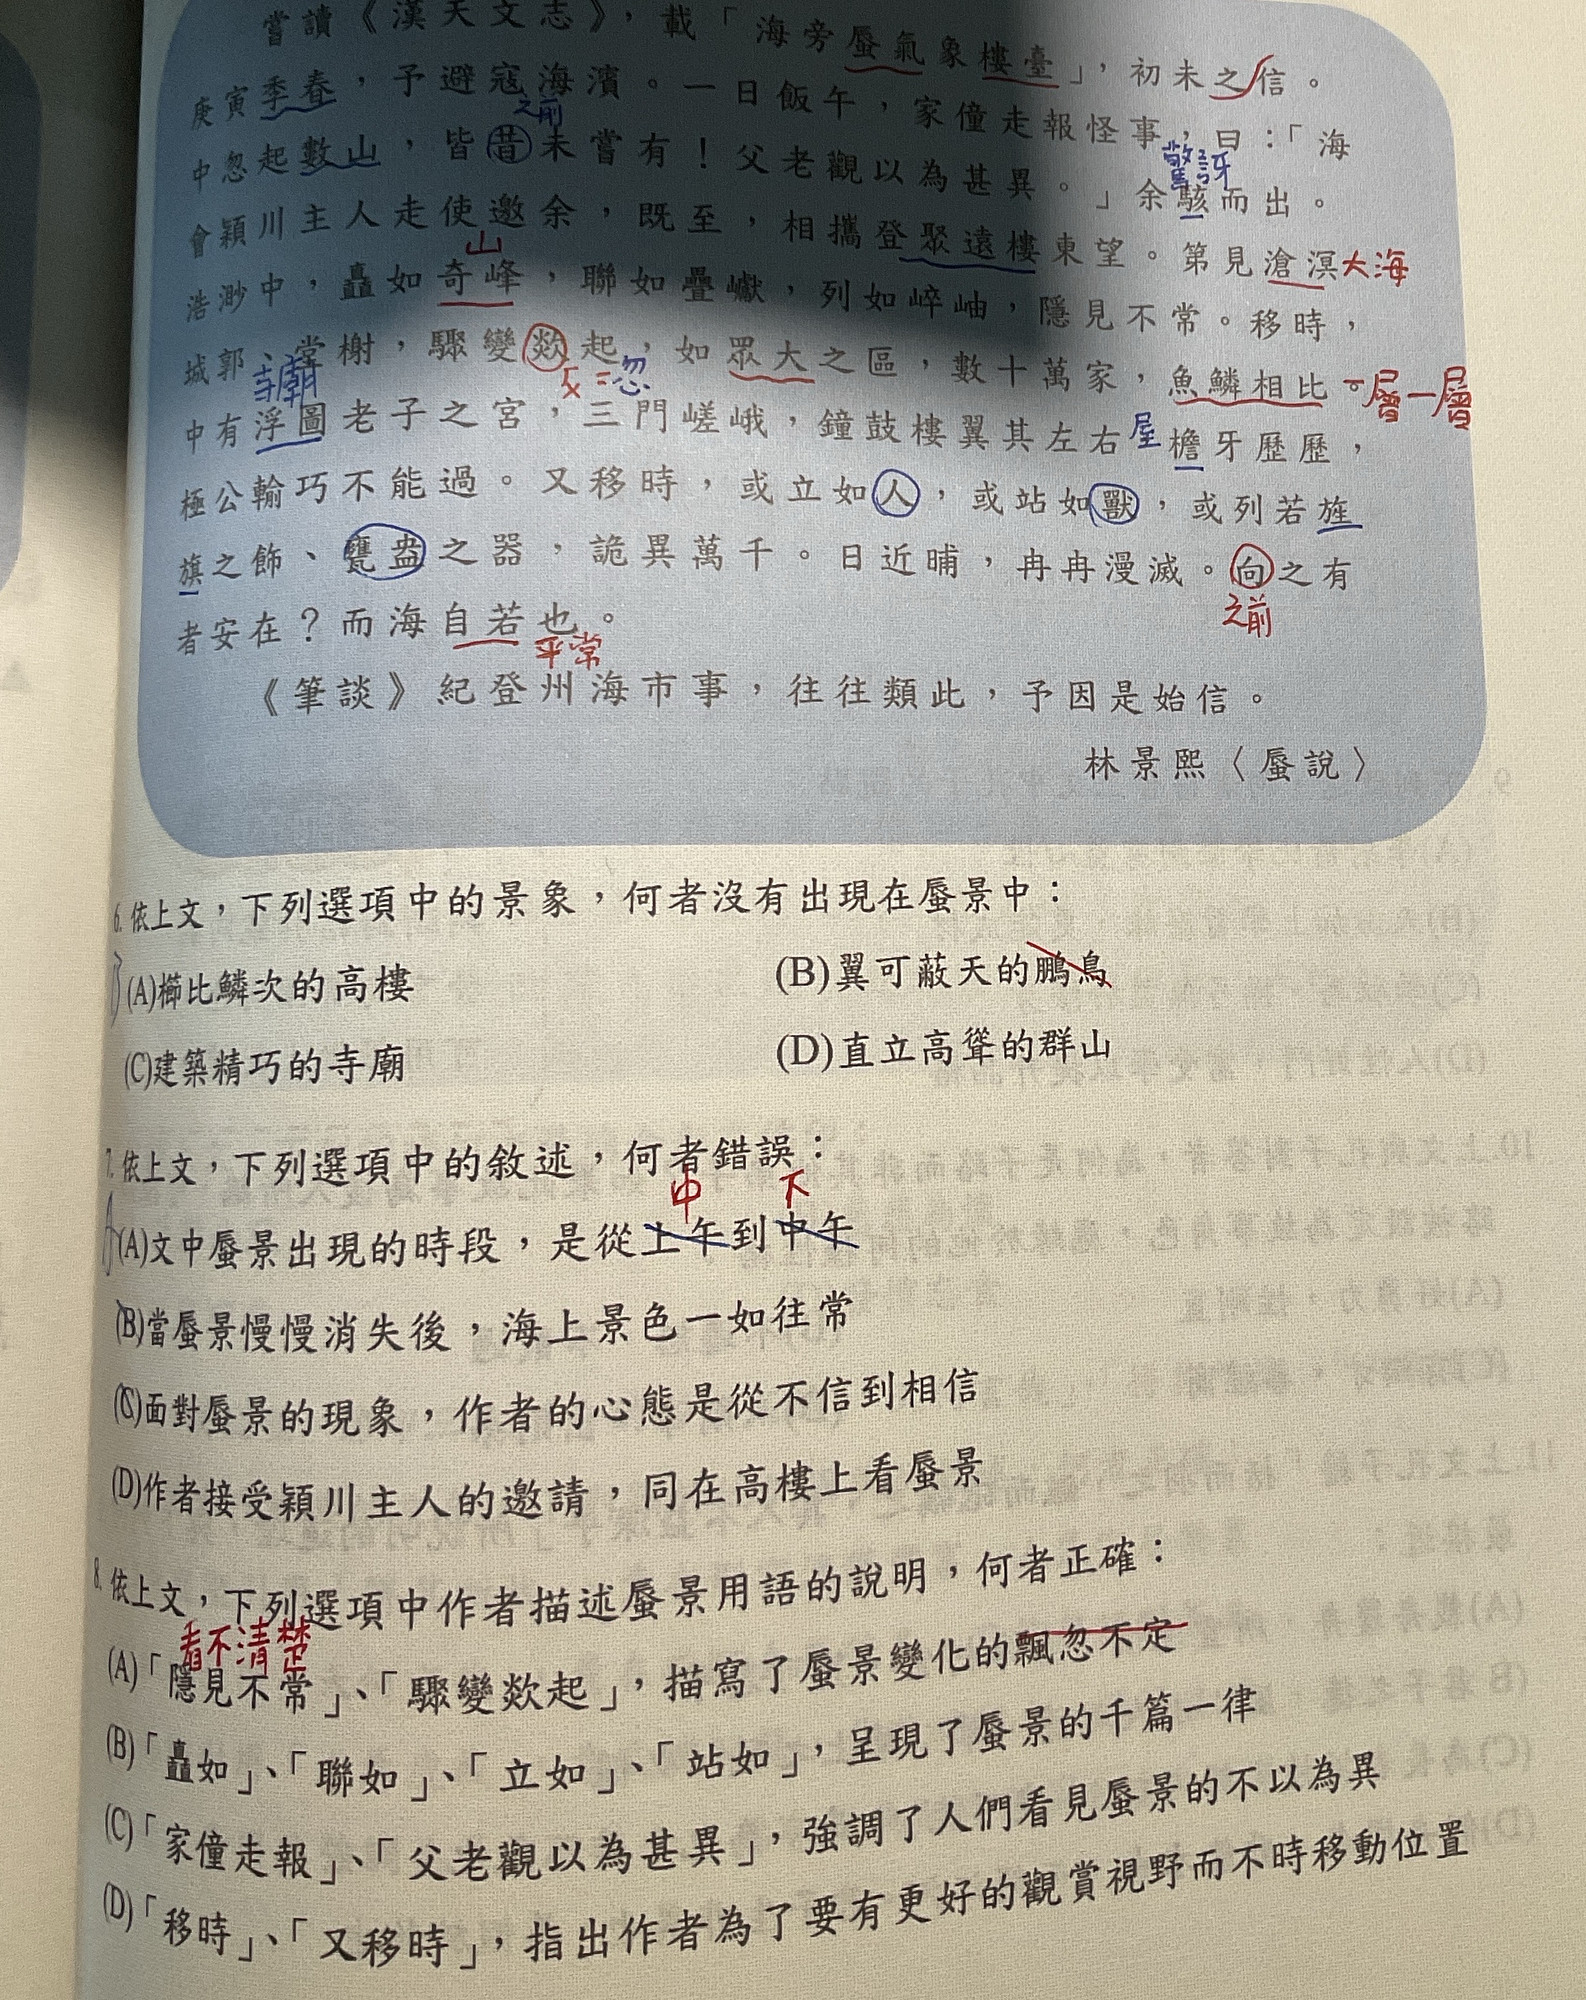 嘗讀《漢天文志》，載「海旁蜃氣象樓臺」，初未之信。
庚寅季春，予避寇海濱。一日飯午，家僮走報怪事，曰：「海
之前
中忽起數山，皆昔未嘗有！父老觀以為甚異。」余駭而出。
驚訝
會穎川主人走使邀余，既至，相攜登聚遠樓東望。第見滄溟大海
山
浩渺中，矗如奇峰，聯如疊巘，列如崪岫，隱見不常。移時，
城郭、堂榭，驟變欻起，如眾大之區，數十萬家，魚鱗相比。一層一層
寺廟
忽
中有浮圖老子之宮，三門嵯峨，鐘鼓樓翼其左右屋檐牙歷歷，
極公輸巧不能過。又移時，或立如人，或站如獸，或列若旌
旗之飾、甕盎之器，詭異萬千。日近晡，冉冉漫滅。向之有
之前
者安在？而海自若也。
平常
《筆談》紀登州海市事，往往類此，予因是始信。
林景熙〈蜃說〉
6. 依上文，下列選項中的景象，何者沒有出現在蜃景中：
B
(A)櫛比鱗次的高樓 (B)翼可蔽天的鵬鳥
(C)建築精巧的寺廟 (D)直立高聳的群山
7. 依上文，下列選項中的敘述，何者錯誤：
中 下
A
(A)文中蜃景出現的時段，是從上午到中午
(B)當蜃景慢慢消失後，海上景色一如往常
(C)面對蜃景的現象，作者的心態是從不信到相信
(D)作者接受穎川主人的邀請，同在高樓上看蜃景
8. 依上文，下列選項中作者描述蜃景用語的說明，何者正確：
看不清楚
(A)「隱見不常」、「驟變欻起」，描寫了蜃景變化的飄忽不定
(B)「矗如」、「聯如」、「立如」、「站如」，呈現了蜃景的千篇一律
(C)「家僮走報」、「父老觀以為甚異」，強調了人們看見蜃景的不以為異
(D)「移時」、「又移時」，指出作者為了要有更好的觀賞視野而不時移動位置